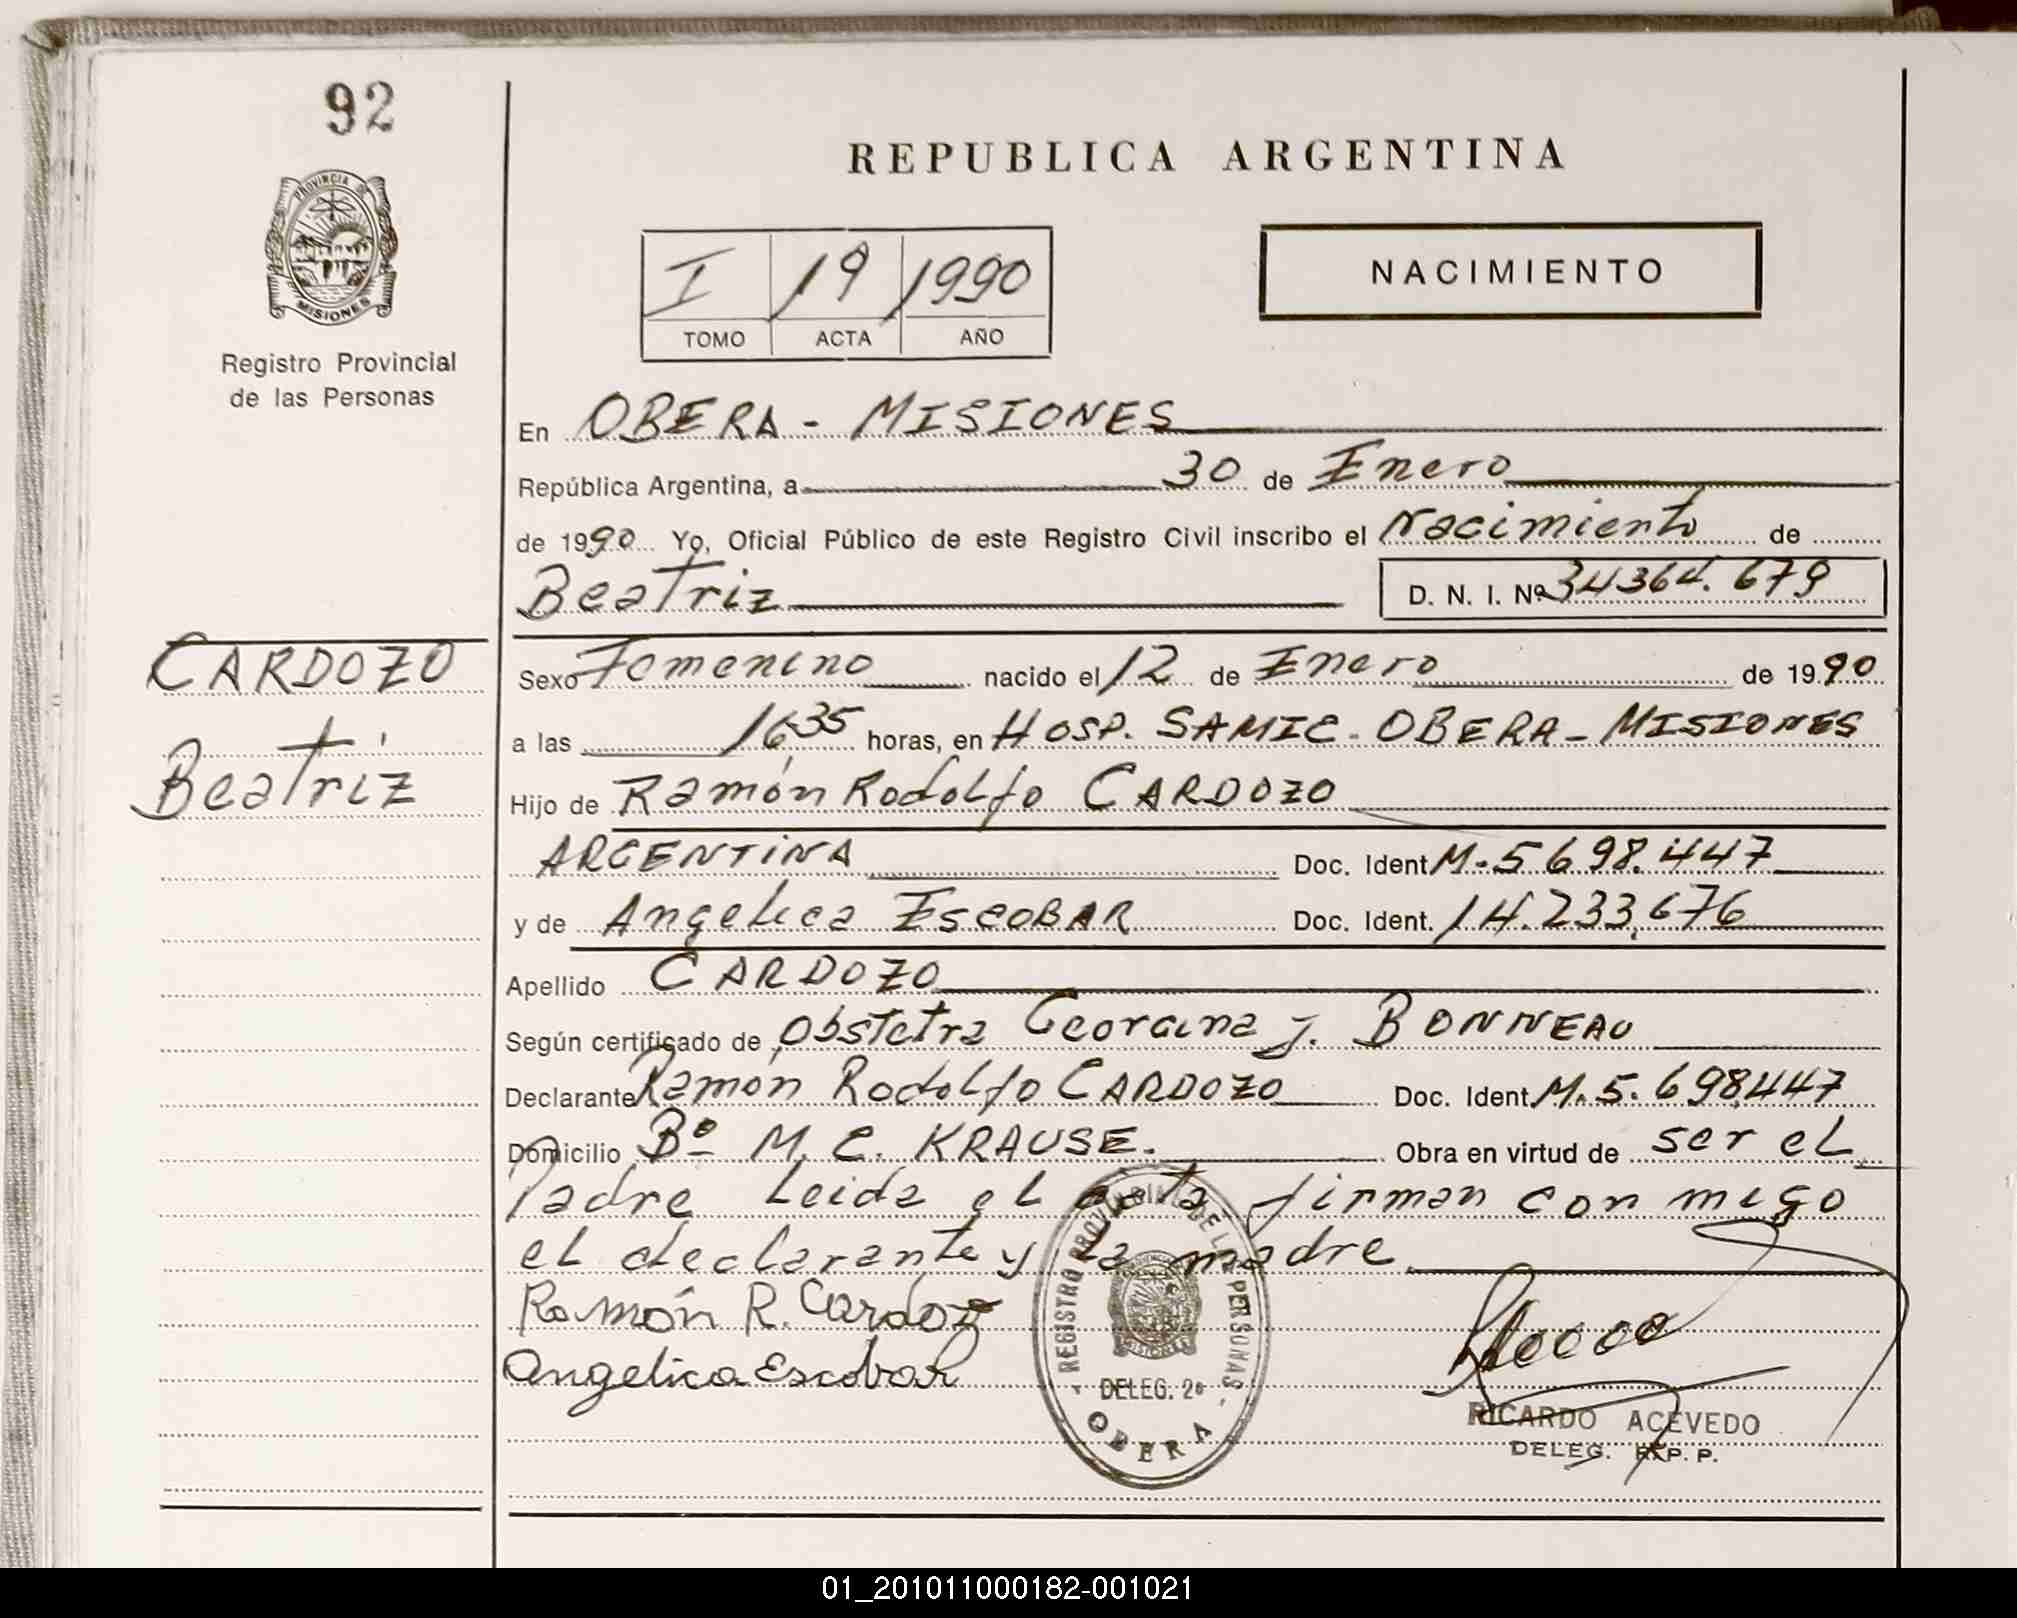 92
REPUBLICA ARGENTINA
PROVINCIA DE
MISIONES
I 19 1990
TOMO ACTA AÑO
NACIMIENTO
Registro Provincial
de las Personas
En OBERA - MISIONES
República Argentina, a 30 de Enero
de 1990 Yo, Oficial Público de este Registro Civil inscribo el Nacimiento de
Beatriz D. N. I. Nº 34364.679
CARDOZO
Beatriz
Sexo Femenino nacido el 12 de Enero de 1990
a las 16,35 horas, en HOSP. SAMIC - OBERA - MISIONES
Hijo de Ramón Rodolfo CARDOZO
ARGENTINA Doc. Ident. M. 5698.447
y de Angelica ESCOBAR Doc. Ident. 14.233.676
Apellido CARDOZO
Según certificado de Obstetra Georgina J. BONNEAU
Declarante Ramón Rodolfo CARDOZO Doc. Ident. M. 5.698.447
Domicilio Bº M. C. KRAUSE. Obra en virtud de ser el
Padre Leida el acta firman con migo
el declarante y la madre.
Ramón R. Cardozo
Angelica Escobar
REGISTRO PROVINCIAL DE LAS PERSONAS
DELEG. 2ª
OBERA
RICARDO ACEVEDO
DELEG. R.P.P.
01_201011000182-001021